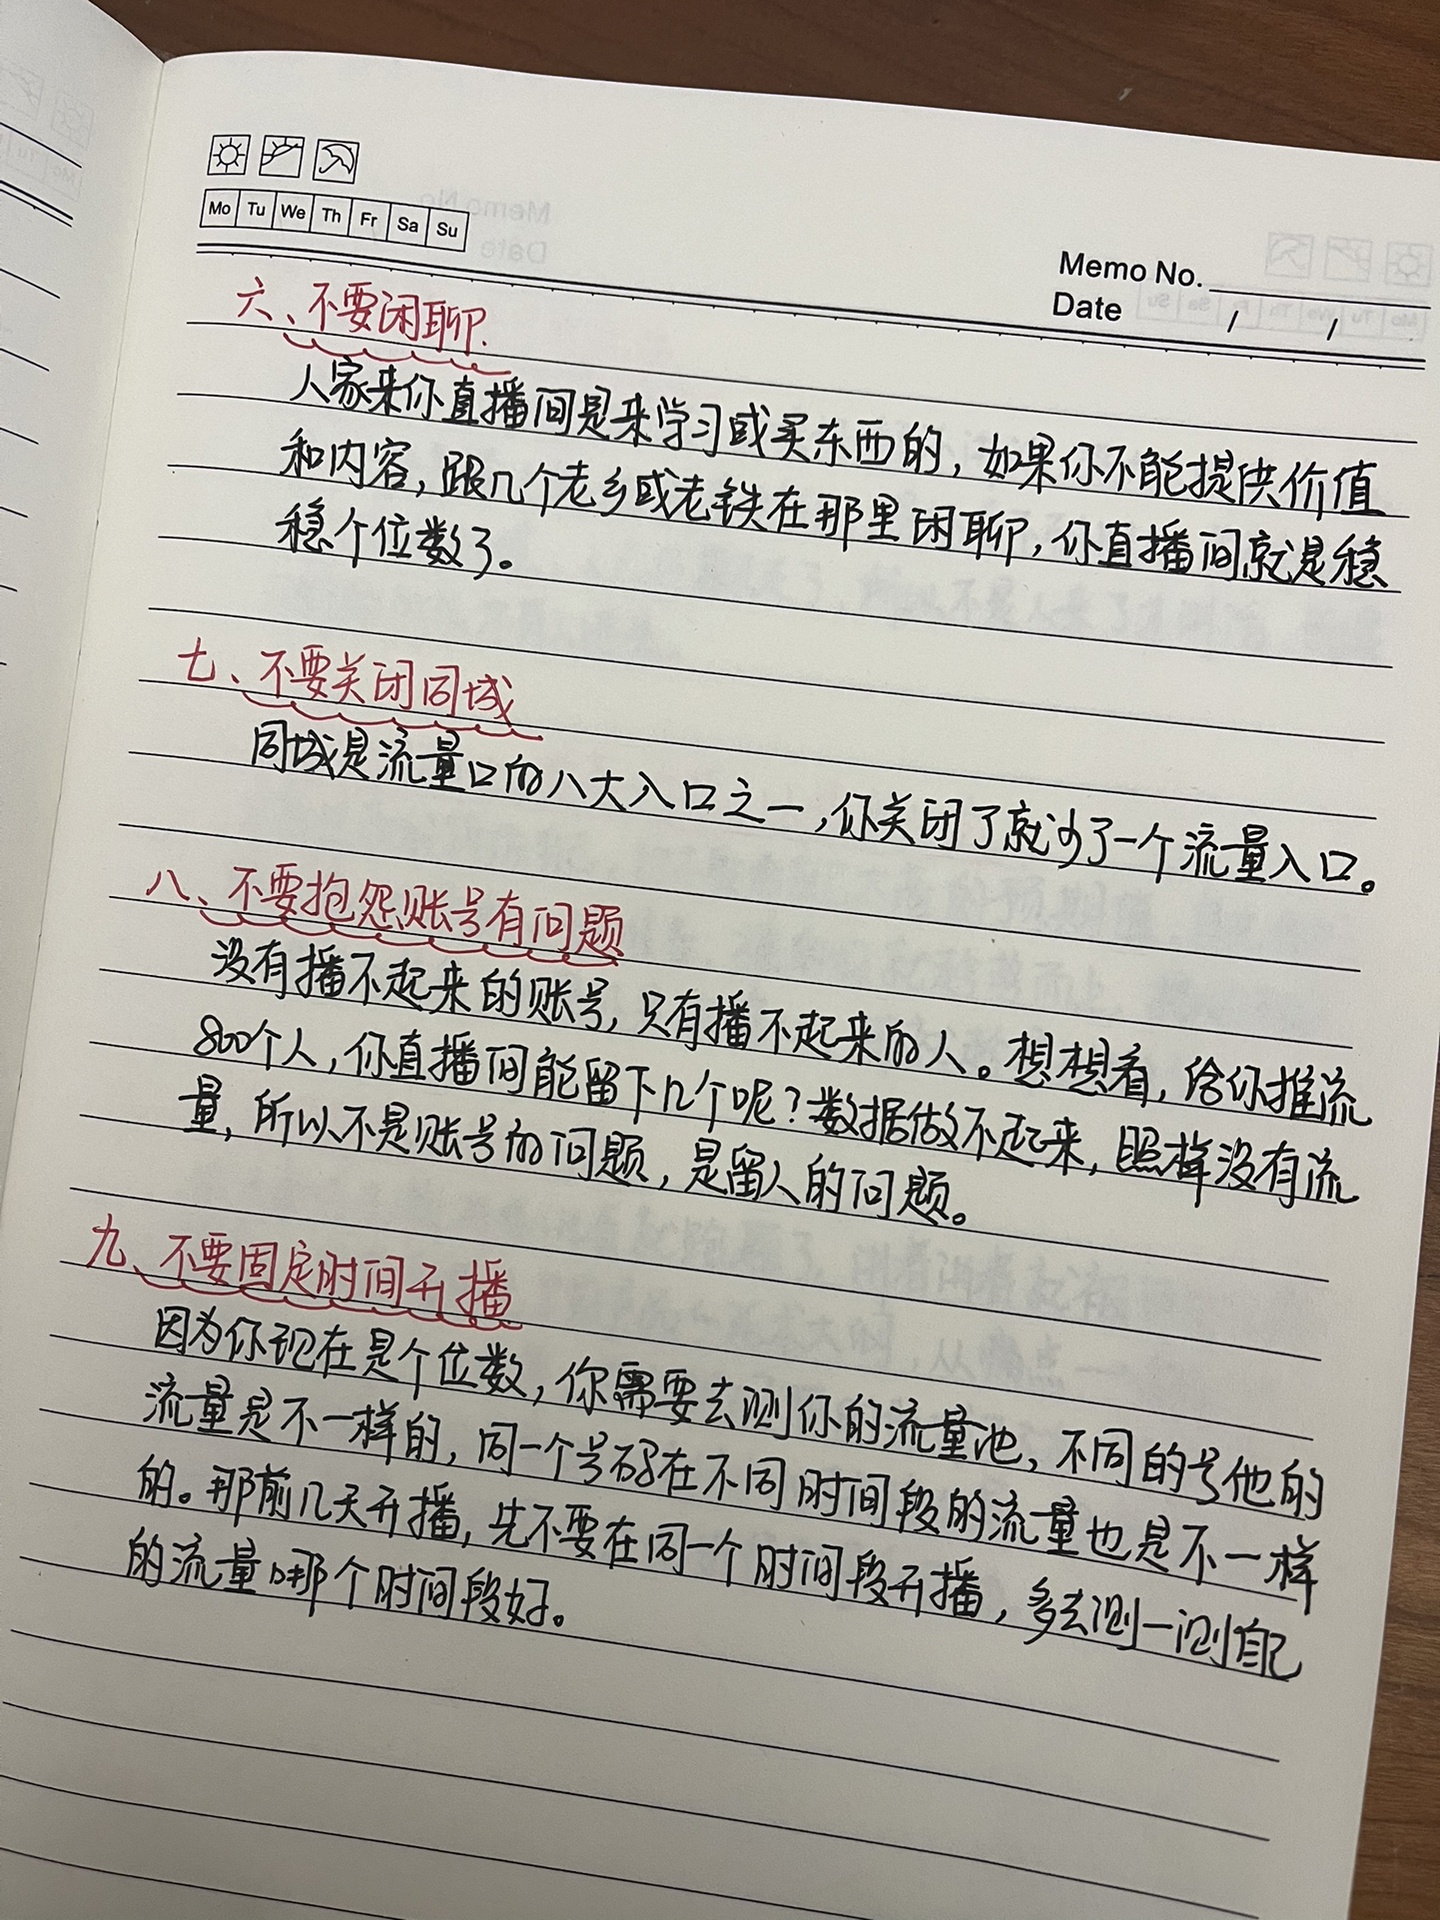 Mo Tu We Th Fr Sa Su
Memo No.
Date / /
六、不要闲聊.
人家来你直播间是来学习或买东西的,如果你不能提供价值
和内容,跟几个老乡或老铁在那里闲聊,你直播间就是稳
稳个位数了。
七、不要关闭同城
同城是流量口的八大入口之一,你关闭了就少了一个流量入口。
八、不要抱怨账号有问题
没有播不起来的账号,只有播不起来的人。想想看,给你推流
800个人,你直播间能留下几个呢?数据做不起来,照样没有流
量,所以不是账号的问题,是留人的问题。
九、不要固定时间开播
因为你现在是个位数,你需要去测你的流量池,不同的号他的
流量是不一样的,同一个号码在不同时间段的流量也是不一样
的。那前几天开播,先不要在同一个时间段开播,多去测一测自己
的流量哪个时间段好。